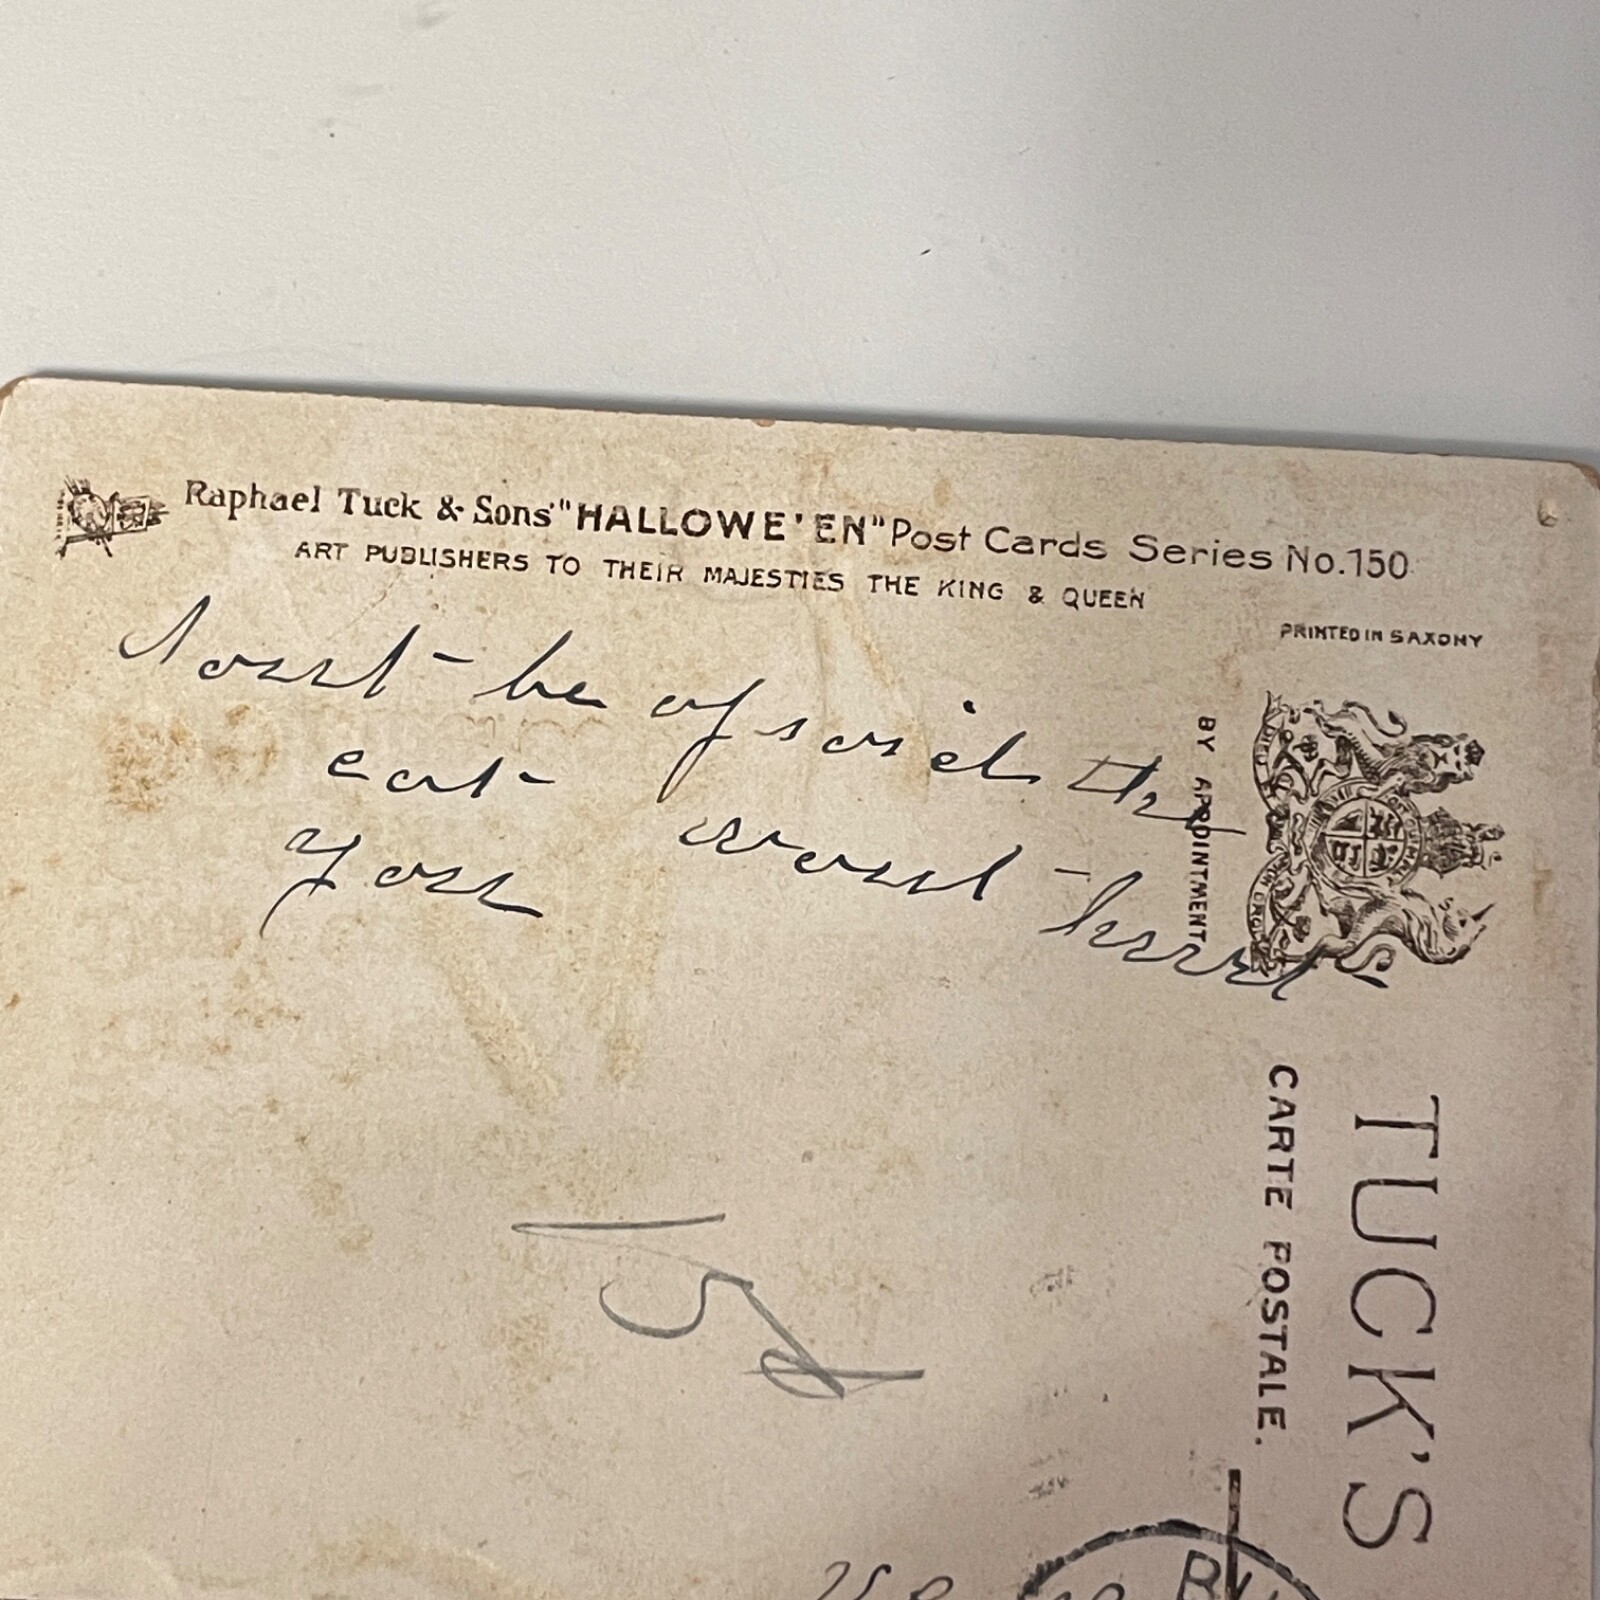 Raphael Tuck & Sons' "HALLOWE'EN" Post Cards Series No. 150
ART PUBLISHERS TO THEIR MAJESTIES THE KING & QUEEN
PRINTED IN SAXONY
Dont be afraid the
cat wont hurt
you
BY APPOINTMENT
TUCK'S
CARTE POSTALE.
15